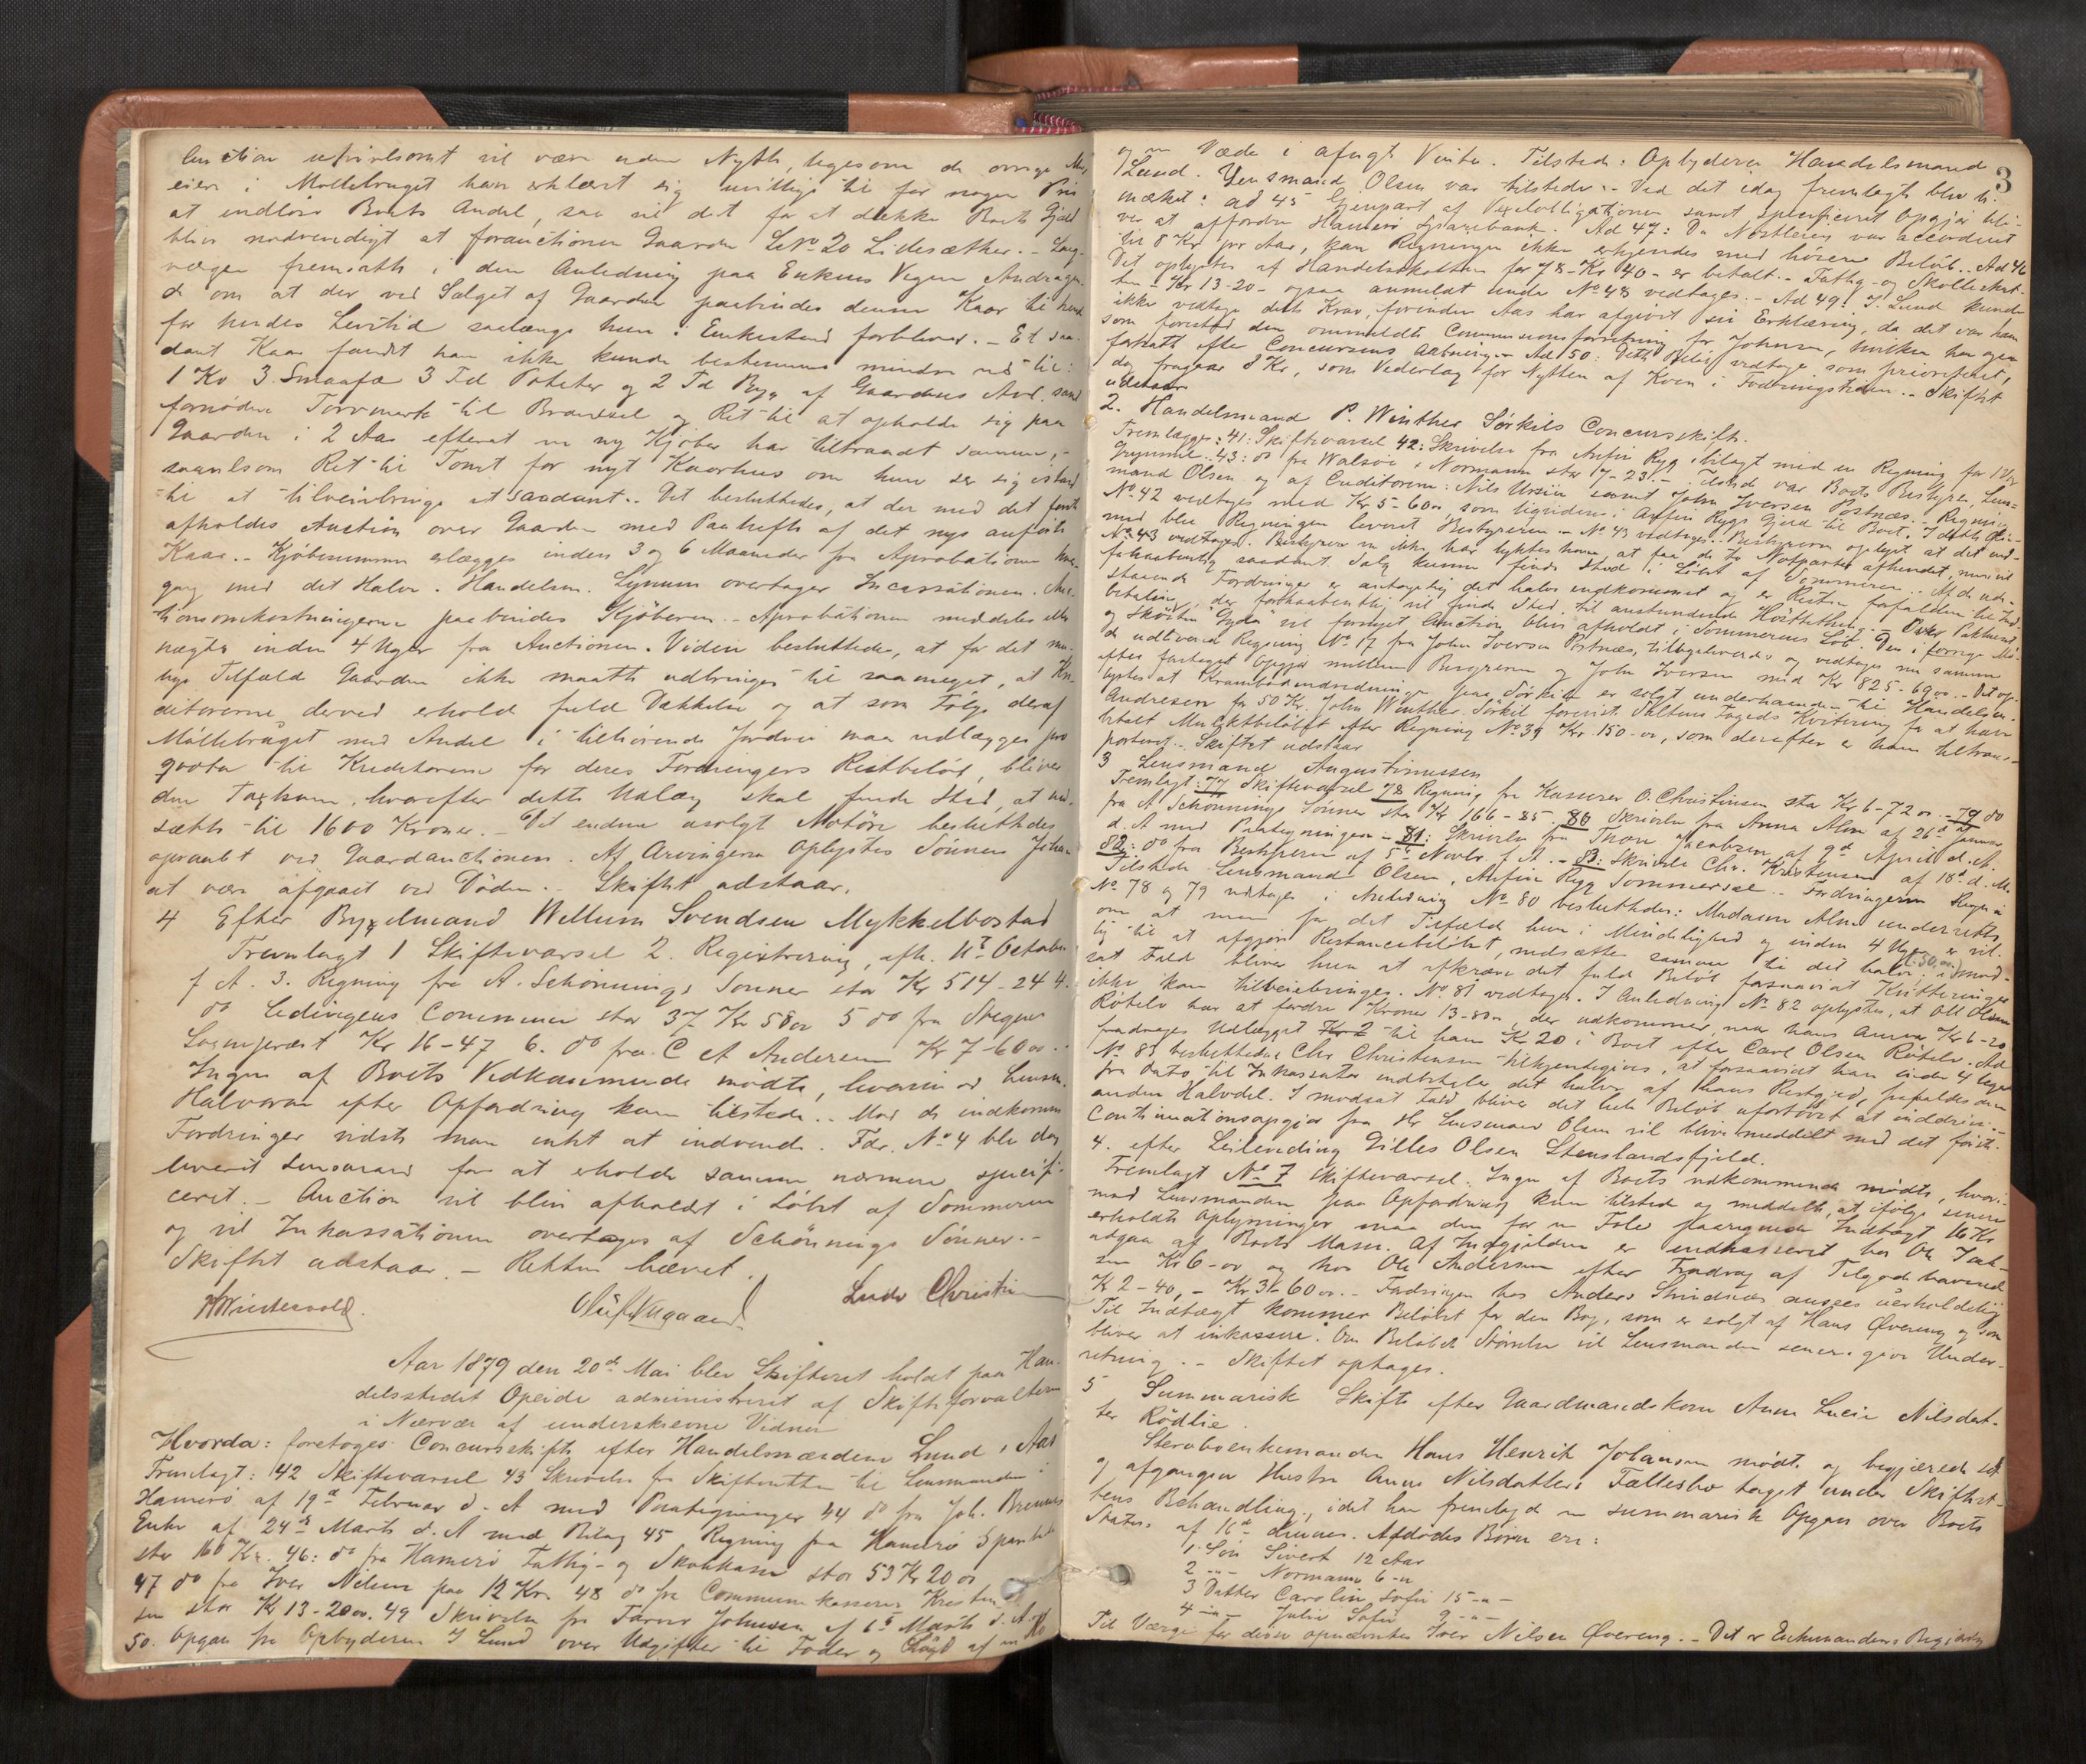 Auction utvivlsomt vil være uden Nytte, ligesom de øvrige Med-
eiere i Møllebruget har erklært sig uvillige til for nogen Pris
at indløse Boets Andel, saa vil det for at dække Boets Gjæld
blive nødvendigt at forauctionere Gaarden LNo 20 Lidesæther. - Laug-
værgen fremsatte i den Anledning paa Enkens Vegne Andragen-
de om at der ved Salget af Gaarden paabindes denne Kaar til hende
for hendes Levetid saalænge hun i Enkestand forbliver. - Et saa-
dant Kaar fandt han ikke kunde bestemmes mindre end til:
1 Ko 3 Smaafæ 3 Td Poteter og 2 Td Byg af Gaardens Avl samt
fornøden Torvmyrk til Brændsel og Ret til at opholde sig paa
Gaarden i 2 Aar efterat en ny Kjøber har tiltraadt samme, -
saavelsom Ret til Tomt for nyt Kaarhus om hun ser sig istand
til at tilveiebringe et saadant. - Det besluttedes, at der med det første
afholdes Auction over Gaarden med Paahefte af det nys anførte
Kaar. - Kjøbesummen erlægges inden 3 og 6 Maaneder fra Aprobationen hver
gang med det Halve. Handelsm. Lynum overtager Incassationen. Auc-
tionsomkostningerne paabindes Kjøberen. - Aprobationen meddeles eller
nægtes inden 4 Uger fra Auctionen. Videre besluttedes, at for det mu-
lige Tilfælde Gaarden ikke maatte udbringes til saameget, at Kre-
ditorerne derved erholde fuld Dækkelse og at som Følge deraf
Møllebruget med Andel i tilhørende Jordvei maa udlægges pro
qvota til Kreditorerne for deres Fordringers Restbeløb, bliver
den Taxsum, hvorefter dette Udlæg skal finde Sted, at an-
sætte til 1600 Kroner. - Det endnu usolgte Motøre besluttedes
opraabt ved Gaardauctionen. Af Arvingerne oplystes Sønnen Johan
at være afgaaet ved Døden. - Skiftet udstaar.
4 Efter Bygselmand Willum Svendsen Mykkelbostad
Fremlagt 1 Skiftevarsel 2. Registrering, afh. 11te October
f A. 3. Regning fra A. Schønnings Sønner stor Kr 514-24 4.
do Lødingens Commune stor 37 Kr 58 øre 5 do fra Steguer
Sognepræst Kr 16-47 6. do fra C A Andersen Kr 7-60 øre
Ingen af Boets Vedkommende mødte, hvorimod Lensm.
Halvorsen efter Opfordring kom tilstede. - Mod de indkomne
Fordringer vidste man intet at indvende. Fdr. No 4 blev dog
leveret Lensmand for at erholde samme nærmere specifi-
ceret. - Auction vil blive afholdt i Løbet af Sommeren
og vil Inkassationen overtages af Schønnings Sønner. -
Skiftet udstaar. - Retten hævet.
Ludv Christin
Aar 1879 den 20de Mai blev Skifteret holdt paa Han-
delsstedet Opeide administreret af Skifteforvalteren
i Nærvær af underskrevne Vidner
Hvorda: foretoges Concursskifte efter Handelsmændene Lund i Aas
Fremlagt: 42 Skiftevarsel 43 Skrivelse fra Skifteretten til Lensmanden i
Hamerø af 19de Februar d. A med Paategninger 44 do fra Joh. Brenners
Enke af 24de Marts d. A med Bilag 45 Regning fra Hamerø Spareb
stor 160 Kr. 46: do fra Hamerø Fattig- og Skolekasse stor 53 Kr 20 øre
47 do fra Iver Nilsen paa 12 Kr. 48 do fra Communekasserer Kresten-
sen stor Kr 13-20 øre. 49 Skrivelse fra Johnsen af 6te Marts d. A.
50. Opgave fra Opbyderen J Lund over Udgifter til Foder og af en Ko
3
og en Væde i afvigte Vinter. Tilstede: Opbyderen Handelsmand
Lund. Lensmand Olsen var tilstede. - Ved det idag fremlagte blev be-
mærket: ad 45 Gjenpart af Vexelobligationen samt specificeret Opgjør bli-
ver at affordre Hamerø Sparebank. Ad 47: Da Nøstlering var accorderet
til 8 Kr pr Aar, kan Regningen ikke erkjendes med høiere Beløb. - Ad 46
Det oplystes at Handelsskatten for 78 - Kr 40 - er betalt. - Fattig- og Skoleskat-
ten - Kr 13-20 - ogsaa anmeldt under No 48 vedtages. - Ad 49: J. Lund kunde
ikke vedtage dette Krav, forinden Aas har afgivet sin Erklæring, da det var ham
som forestod den ommeldte Commissionsforretning for Johnsen, hvilken han ogsaa
fortsatte efter Concursens Aabning. - Ad 50: Dette Beløb vedtoges som prioriteret,
dog fragaar 8 Kr, som Vederlag for Nytten af Koen i Fodringstiden. - Skiftet
udstaar
2. Handelsmand P. Winther Sørkils Concursskifte.
Fremlagdes: 41: Skiftevarsel 42: Skrivelse fra Anfin Ryg ibilagt med en Regning for
43: do fra Walsøe & Normann stor 7-23. - Tilstede var Boets Bestyrer, Lens-
mand Olsen og af Creditorerne: Nils Ursin samt John Iversen Postnæs. - Regning
No 42 vedtoges med Kr 5-60 øre, som liqviderer i Anfin Rygs Gjæld til Boet. I dette Øie-
med blev Regningen leveret Bestyreren - No 43 vedtoges. - Bestyreren oplyste at det
No 43 vedtoges. Bestyreren ikke har lykkets ham at faa de to Notparter afhændet, men vil
forhaabentlig saadant Salg kunne finde Sted i Løbet af Sommeren. - Af de ude-
staaende Fordringer er antagelig det halve indkommet og er Resten forfalden til Ind-
betaling, der forhaabentlig vil finde Sted til anstundende Høstthething. - Over Pakhuset
og Skøiten Gyda vil fornyet Auction blive afholdt i Sommerens Løb. Den i forrige Mø-
de udleverede Regning No 17 fra John Iversen Postnæs, tilbageleveredes og vedtoges nu samme
efter foretaget Opgjør mellem Bestyreren og John Iversen med Kr 825-69 øre. - Det op-
lystes at Krambodindredningen paa Sørkil er solgt underhaanden til Handelsm.
Andresen for 50 Kr. John Winther Sørkil foreviste Saltens Fogeds Kvittering for at have
betalt Mulktbeløbet efter Regning No 39 Kr. 150-00, som derefter er ham tiltrans-
porteret. - Skiftet udstaar
3 Lensmand Augustinussen
Fremlagt: 77 Skiftevarsel 78 Regning fra Kasserer O. Christensen stor Kr 6-72 øre. - 79 do
fra A Schønnings Sønner stor Kr 166-85. 80 Skrivelse fra Anna Alm af 26de Januar
d. A med Paategninger - 81: Skrivelse fra Thore Jacobsen af 9de April d. A.
82: do fra Bestyreren af 5te Novbr. f. A. - 83: Skrivelse Chr. Kristensen af 18de d. M.
Tilstede Lensmand Olsen, Anfin Rygg Sommersel. - Fordringerne
No 78 og 79 vedtoges i Anledning No 80 besluttedes: Madam Alm underrettes
om at man for det Tilfælde hun i Mindelighed og inden 4 Uger er vil-
lig til at afgjøre Restancebeløbet, nedsætter samme til det halve, i mod-
sat Fald bliver hun at afkræve det fulde Beløb forsaavidt Kvitteringer
ikke kan tilveiebringes. No 81 vedtoges. I Anledning No 82 oplystes, at Ole Olsen
Røtelv har at fordre Kroner 13-80 øre, der udkommer, naar hans Kr 6-20
fradrages Udlægget til ham Kr 20 i Boet efter Carl Olsen Røtelv. Ad
No 83 besluttedes Chr Christensen tilkjendegives, at forsaavidt han inden 4 Uger
fra Dato til Inkassator indbetaler det halve af hans Restgjæld, frafaldes den
anden Halvdel. I modsat Fald bliver det hele Beløb ufortøvet at inddrive. -
Continuationsopgjør fra Hr Lensmand Olsen vil blive meddelt med det første.
4. efter Leilending Gilles Olsen Stenslandsfjeld.
Fremlagt No 7 Skiftevarsel. Ingen af Boets vedkommende mødte, hvori-
mod Lensmanden paa Opfordring kom tilstede og meddelte, at ifølge senere
erholdte Oplysninger maa den for en Fole paaregnede Indtægt 16 Kr
udgaa af Boets Masse. Af Indgjælden er indkasseret hos Ole Jak-
sen Kr 6-00 og hos Ole Andersen efter Fradrag af Tilgodehavende
K 2-40, - Kr 31-60 øre. - Fordringen hos Anders Strindsæt ansees uerholdelig
Til Indtægt kommer Beløbet for den Bog, som er solgt af Hans Øvereng og som
bliver at inkassere. Om Beløbets Størrelse vil Lensmanden senere give Under-
retning. - Skiftet optages.
5 Summarisk Skifte efter Gaardmandskone Anne Lucie Nilsdat-
ter Rødlie.
Stervboenkemanden Hans Henrik Johansen mødte og begjærede sit
og afgangen Hustru Anne Nilsdatters Fællesbo taget under Skifteret-
tens Behandling, idet han fremlagde en summarisk Opgave over Boets
Status af 16de dennes. Afdødes Børn ere:
1. Søn Sivert 12 Aar
2 -"- Normann 6 -"-
3 Datter Carolin Sofie 15 -"-
4 -"- Julie Sofie 9 -"-
Til Værge for disse opnævntes Iver Nilsen Øvereng. - Det er Enkemandens Begjæring